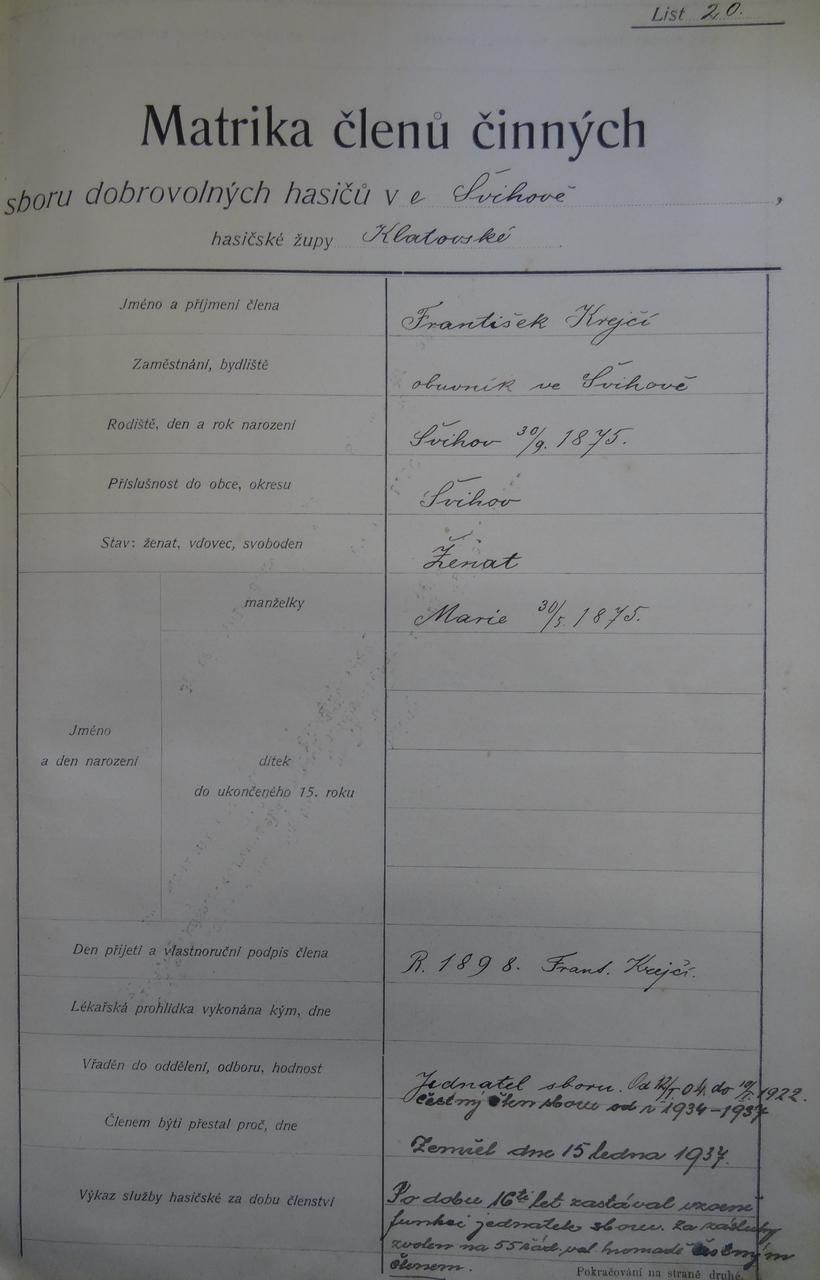 List 20.
Matrika členů činných
sboru dobrovolných hasičů v e Švihově,
hasičské župy Klatovské
Jméno a příjmení člena František Krejčí
Zaměstnání, bydliště obuvník ve Švihově
Rodiště, den a rok narození Švihov 30/9. 1875.
Příslušnost do obce, okresu Švihov
Stav: ženat, vdovec, svoboden Ženat
manželky Marie 30/5. 1875.
Jméno
a den narození
dítek
do ukončeného 15. roku
Den přijetí a vlastnoruční podpis člena R. 1898. Frant. Krejčí.
Lékařská prohlídka vykonána kým, dne
Vřaděn do oddělení, odboru, hodnost Jednatel sboru. Od 12/I 04. do 1922.
čestný člen sboru od r 1934-1937
Členem býti přestal proč, dne Zemřel dne 15 ledna 1937.
Výkaz služby hasičské za dobu členství Po dobu 16ti let zastával vzorně
funkci jednatele sboru. Za zásluhy
zvolen na 55 řád. val. hromadě čestným
členem.
Pokračování na straně druhé.